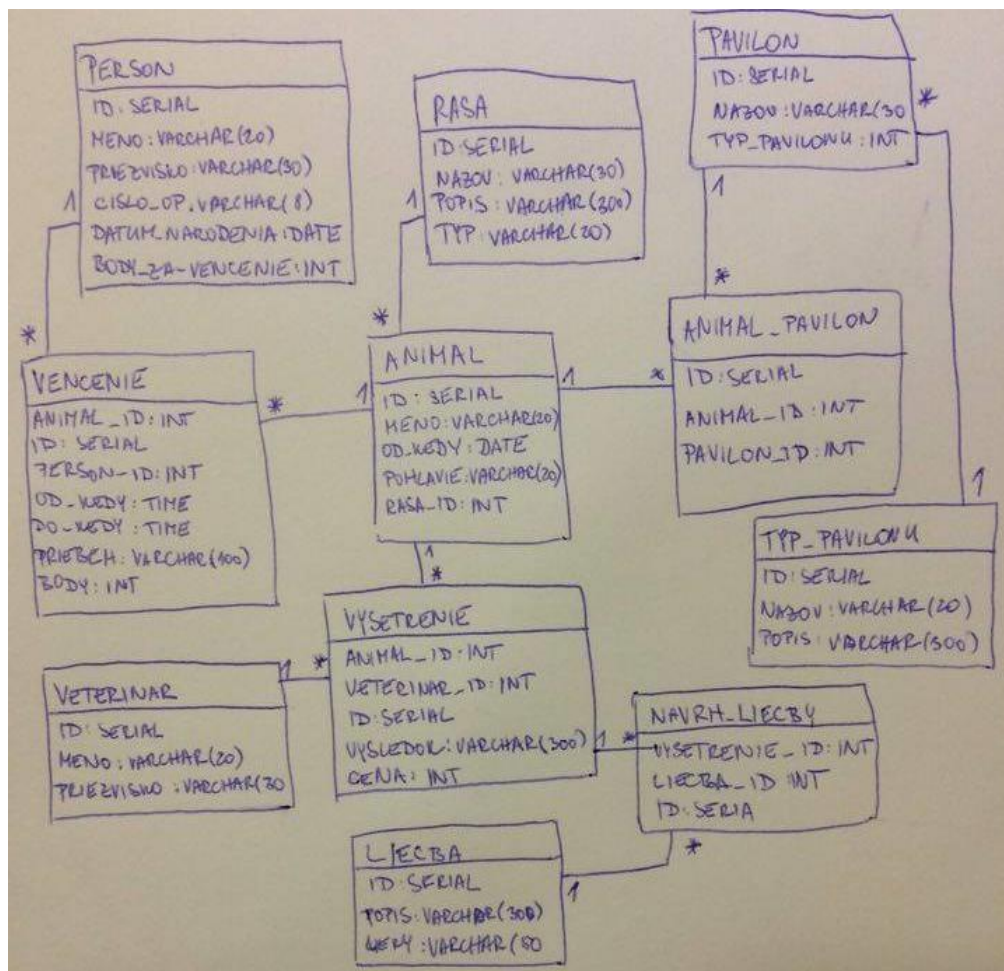 PERSON
ID: SERIAL
MENO: VARCHAR(20)
PRIEZVISKO: VARCHAR(30)
CISLO_OP. VARCHAR(8)
DATUM_NARODENIA: DATE
BODY_ZA-VENCENIE: INT
1
*
RASA
ID: SERIAL
NAZOV: VARCHAR(30)
POPIS: VARCHAR(300)
TYP: VARCHAR(20)
1
*
PAVILON
ID: SERIAL
NAZOV: VARCHAR(30
TYP_PAVILONU: INT
*
1
*
VENCENIE
ANIMAL_ID: INT
ID: SERIAL
PERSON_ID: INT
OD_KEDY: TIME
DO_KEDY: TIME
PRIEBEH: VARCHAR(100)
BODY: INT
*
1
ANIMAL
ID: SERIAL
MENO: VARCHAR(20)
OD_KEDY: DATE
POHLAVIE: VARCHAR(20)
RASA_ID: INT
1
*
ANIMAL_PAVILON
ID: SERIAL
ANIMAL_ID: INT
PAVILON_ID: INT
1
TYP_PAVILONU
ID: SERIAL
NAZOV: VARCHAR(20)
POPIS: VARCHAR(300)
1
*
VYSETRENIE
ANIMAL_ID: INT
VETERINAR_ID: INT
ID: SERIAL
VYSLEDOK: VARCHAR(300)
CENA: INT
1
*
VETERINAR
ID: SERIAL
MENO: VARCHAR(20)
PRIEZVISKO: VARCHAR(30
1
*
NAVRH_LIECBY
VYSETRENIE_ID: INT
LIECBA_ID INT
ID: SERIA
*
1
LIECBA
ID: SERIAL
POPIS: VARCHAR(300)
VARCHAR(50